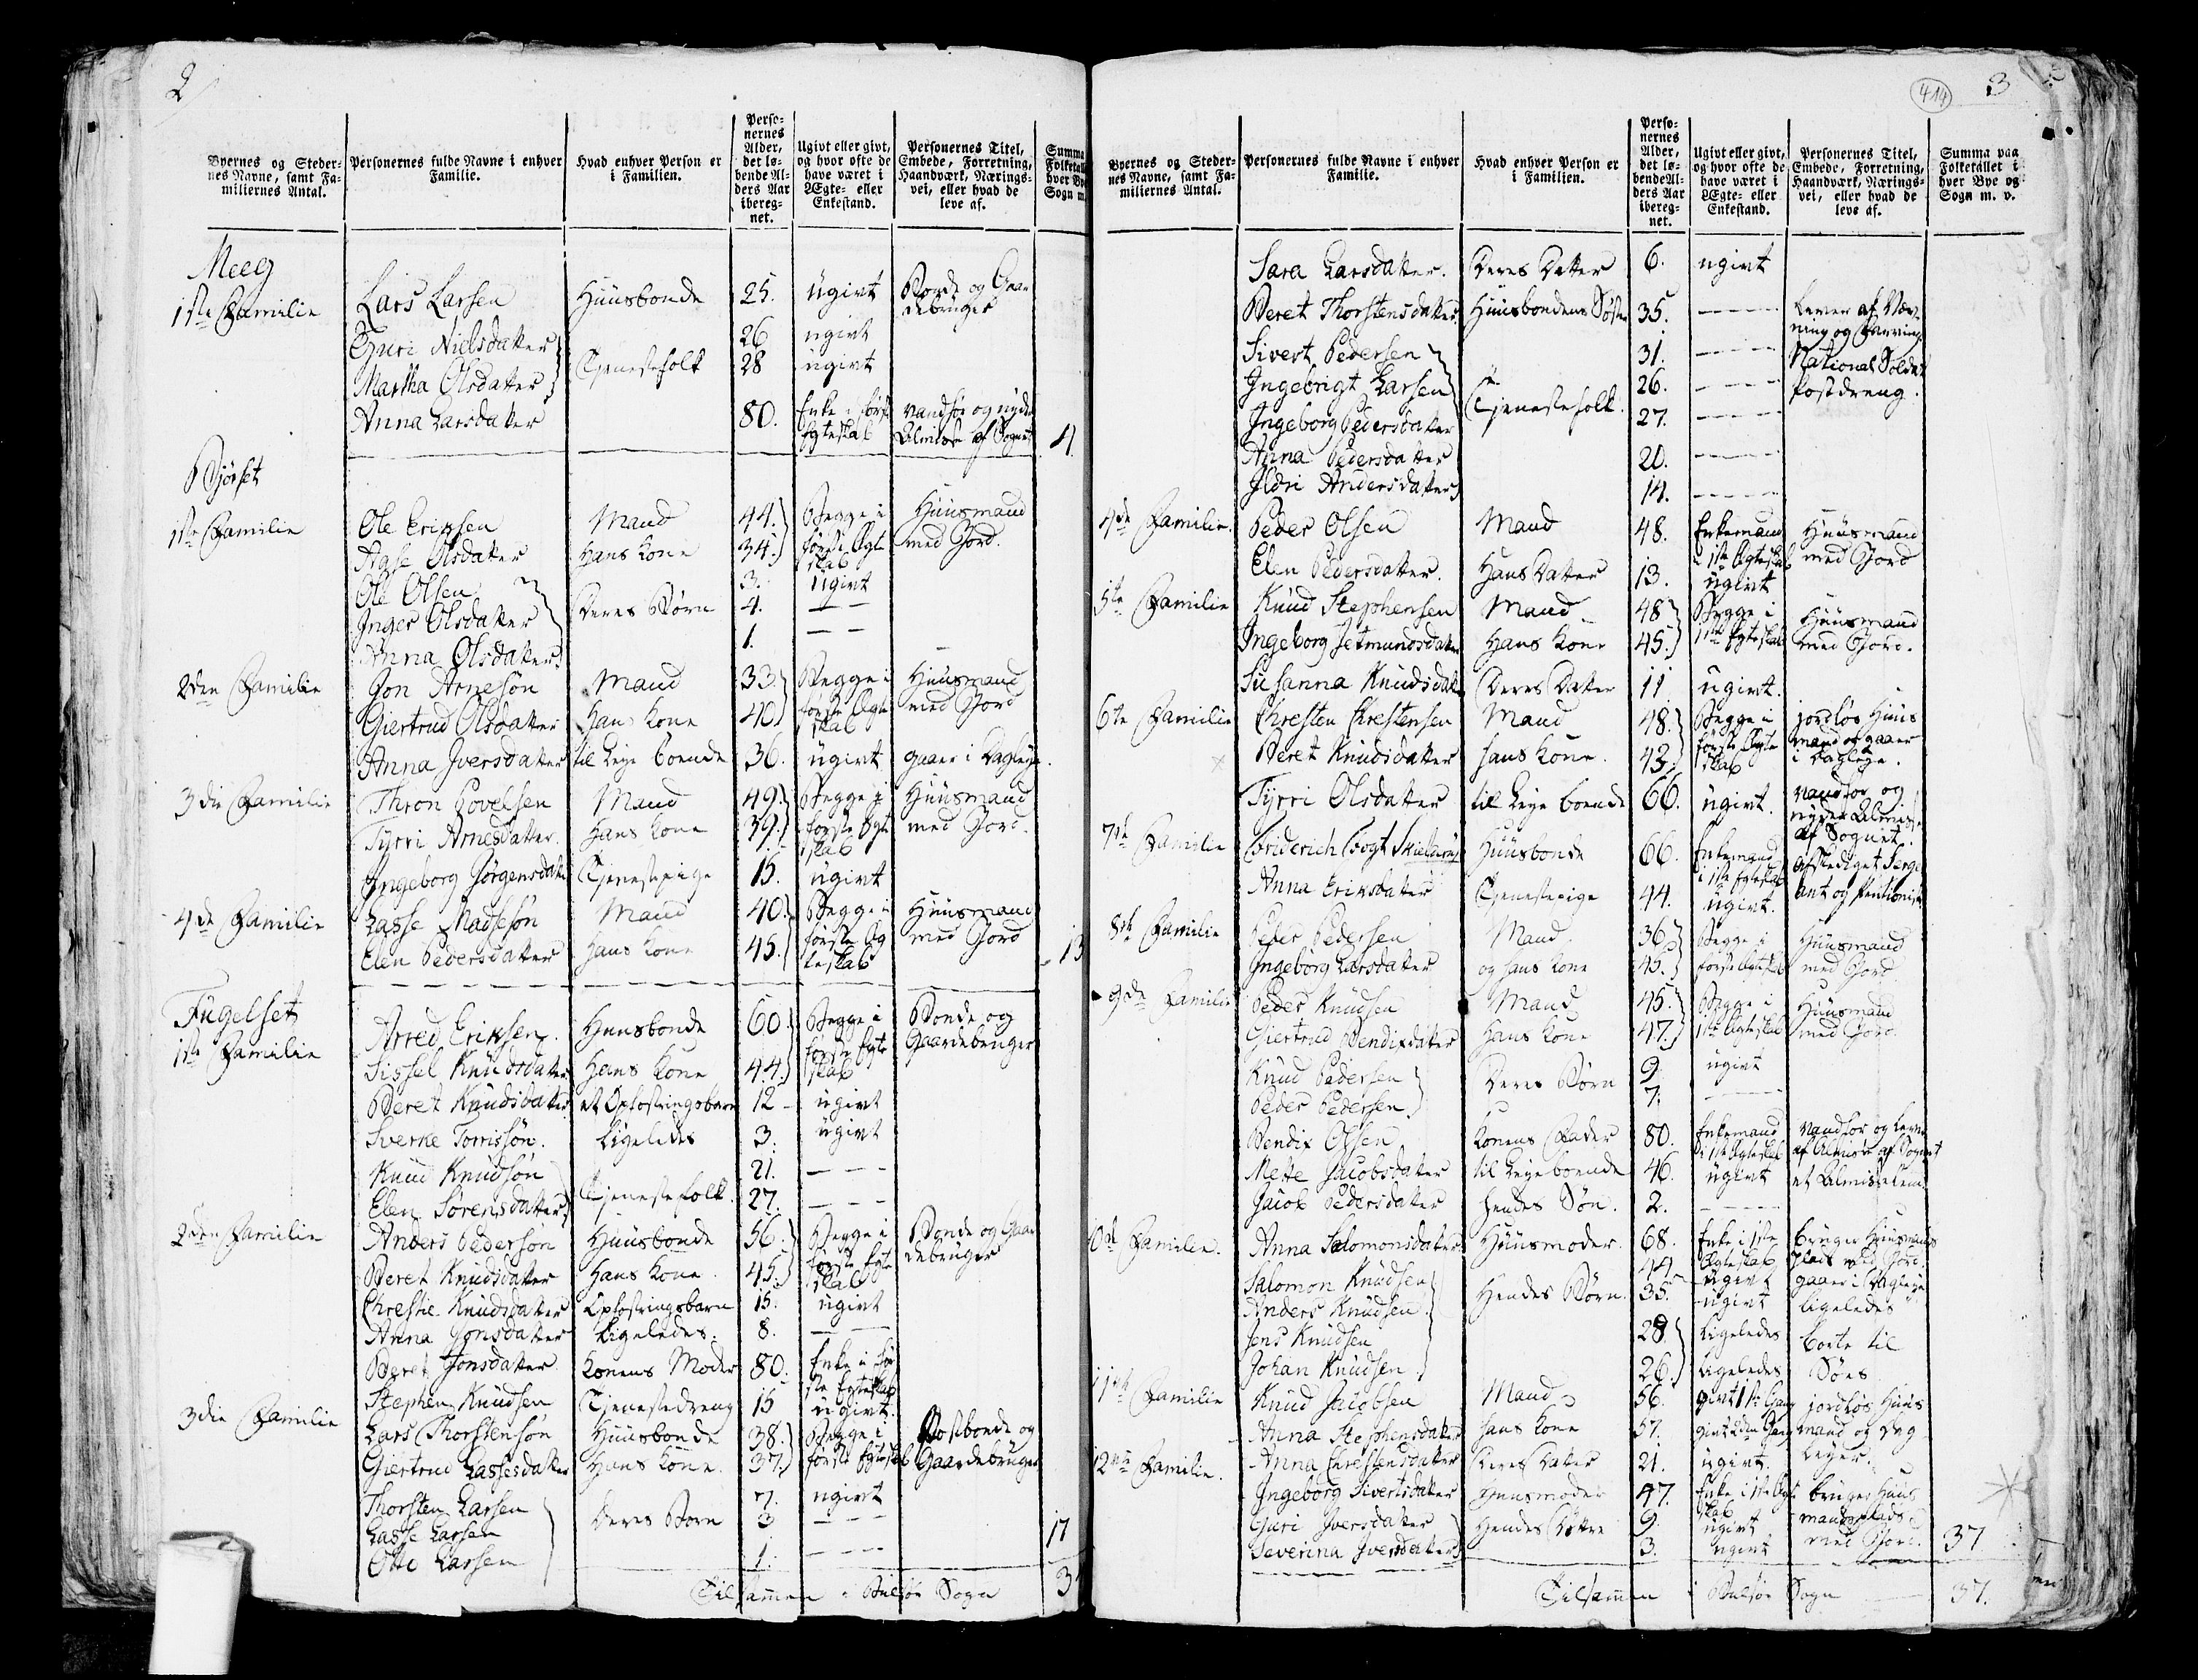 2
Byernes og Steder-
nes Navne, samt Fa-
miliernes Antal.
Personernes fulde Navne i enhver
Familie.
Hvad enhver Person er
i Familien.
Perso-
nernes
Alder,
det lø-
bende Al-
ders Aar
ibereg-
net.
Ugivt eller givt,
og hvor ofte de
have været i
Ægte- eller
Enkestand.
Personernes Titel,
Embede, Forretning,
Haandværk, Nærings-
vei, eller hvad de
leve af.
Summa
Folketal
hver By
Sogn m.
Meeg
1ste Familie Lars Larsen Huusbonde 25. ugivt Bonde og Gaar
debruger
Guri Nielsdatter 26 ugivt
Martha Olsdatter Tjenestefolk 28 ugivt
Anna Larsdatter 80. Enke i første vandfør og nyder
Egteskab Almisse af Sognet 4
Bjørset
1ste Familie Ole Eriksen Mand 44. Begge i Huusmand
Olsdatter Hans Kone 34. første Ægte med Jord.
skab
Ole Olsen 3. ugivt
Inger Olsdatter Deres Børn 4. — —
Anna Olsdatter 1. — —
2den Familie Jon Arnesøn Mand 33. Begge i Huusmand
Giertrud Olsdatter Hans Kone 40. første Ægte med Jord
skab
Anna Iversdatter til Leye boende 36. ugivt gaaer i Dagleye.
3die Familie Thron Povelsen Mand 49. Begge i Huusmand
Tyrri Arnesdatter Hans Kone 39. første Egte med Jord.
skab
Ingeborg Jörgensdatter Tjenestepige 15. ugivt
4de Familie Lasse Madsesøn Mand 40. Begge i Huusmand
Elen Pedersdatter Hans Kone 45. første Eg med Jord
teskab 13
Fugelset
1ste Familie Arved Eriksen Huusbonde 60. Begge i Bonde og
første Egte Gaardebruger
Sissel Knudsdatter Hans Kone 44. skab
Beret Knudsdatter et Opfostringsbarn 12 ugivt
Sverke Torrissøn. Ligeledes 3. ugivt
Knud Knudsøn 21. — —
Elen Sørensdatter Tjenestefolk. 27. — —
2den Familie Anders Pedersøn Huusbonde 56. Begge i Bonde og Gaar
Beret Knudsdatter Hans Kone. 45. første Egte debruger
skab
Chrestie Knudsdatter Opfostringsbarn 15. ugivt
Anna Jonsdatter Ligeledes. 8. — —
Beret Jonsdatter Konens Moder 80. Enke i før
ste Egteskab
Stephen Knudsen Tjenestedreng 15 ugivt.
3die Familie Lars Thorstensøn Huusbonde 38. Begge i Postbonde og
Giertrud Lassesdatter Hans Kone. 37. første Egteskab Gaardebruger
Thorsten Larsen 7. ugivt
Lasse Larsen Deres Børn 3 — —
Otte Larsen 1. — — 17
Tilsammen i Bulsøe Sogn 3
414
3
Byernes og Steder-
nes Navne, samt Fa-
miliernes Antal.
Personernes fulde Navne i enhver
Familie.
Hvad enhver Person er
i Familien.
Perso-
nernes
Alder,
det lø-
bende Al-
ders Aar
ibereg-
net.
Ugivt eller givt,
og hvor ofte de
have været i
Ægte- eller
Enkestand.
Personernes Titel,
Embede, Forretning,
Haandværk, Nærings-
vei, eller hvad de
leve af.
Summa paa
Folketallet i
hver Bye og
Sogn m. v.
Sara Larsdatter. Deres Datter 6. ugivt
Beret Thorstensdatter Huusbondens Søster 35. — — Lever af Væv
ning og
Sivert Pedersen 31. — — National Soldat
Ingebrigt Larsen 26. — — Postdreng.
Ingeborg Pedersdatter Tjenestefolk. 27. — —
Anna Pedersdatter 20. — —
Ildri Andersdatter 14. — —
4de Familie. Peder Olsen Mand 48. Enkemand Huusmand
i 1ste Egteskab med Jord
Elen Pedersdatter. Hans Datter 13. ugivt
5te Familie Knud Stephensen Mand 48 Begge i Huusmand
Ingeborg Jetmundsdatter Hans Kone 45. 1ste Egteskab med Jord.
Susanna Knudsdatter Deres Datter 11 ugivt.
6te Familie Chresten Chrestensen Mand 48. Begge i jordløs Huus
første Egte mand og gaaer
Beret Knudsdatter Hans Kone. 43. skab i Dagleye.
Tyrri Olsdatter til Leye boende 66. ugivt. vandfør og
nyder Almisse
af Sognet.
7de Familie Friderich Fogt Huusbonde 66. Enkemand Afskediget Serge
i 1ste Egteskab ant og Pentionist
Anna Eriksdatter Tjenestepige 44. ugivt.
8de Familie Peder Pedersen Mand 36 Begge i Huusmand
Ingeborg Larsdatter og Hans Kone 45. første Egteskab med Jord
9de Familie Peder Knudsen Mand 45. Begge i Huusmand
Giertrud Bendixdatter Hans Kone 47. 1ste Egteskab med Jord.
Knud Pedersen 9 ugivt
Peder Pedersen Deres Børn 7. — —
Bendix Olsen Konens Fader 80. Enkemand vandfør og lever
i 1ste Egteskab af Almisse af Sognet
Mette Jacobsdatter til Leye boende 46. ugivt et Almisselem
Jacob Pedersdatter Hendes Søn. 2. — —
10de Familie. Anna Salomonsdatter Huusmoder. 68. Enke i 1ste bruger Huusmands
Egteskab Plads med Jord.
Salomon Knudsen 44 ugivt gaaer i Dagleye
Anders Knudsen Hendes Børn. 35. ugivt ligeledes
Jens Knudsen 28 Ligeledes borte til
Johan Knudsen 26. Ligeledes Søes
11te Familie Knud Jacobsen Mand 56. givt 1ste Gang jordløs Huus
Anna Stephensdatter Hans Kone 57. givt 2den Gang mand og Dag
Anna Chrestensdatter Deres Datter 21. ugivt. leyer.
12te Familie. Ingeborg Sivertsdatter Huusmoder 47. Enke i 1ste Egte bruger Huus
skab mandsplads
Guri Iversdatter Hendes Døttre 9. ugivt med Jord.
Severina Iversdatter 3. ugivt 37
Tilsammen i Bulsøe Sogn 37.